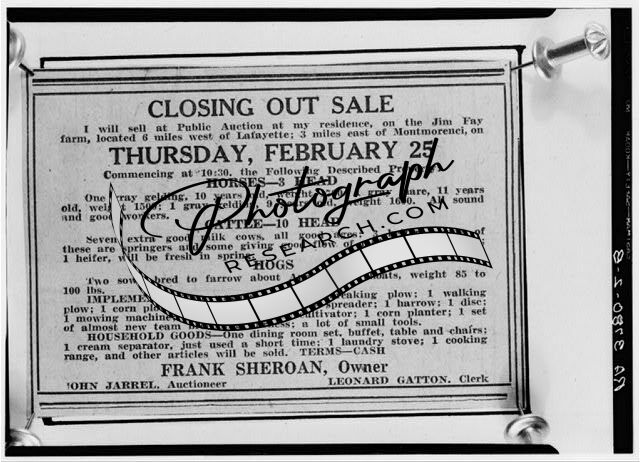 CLOSING OUT SALE
I will sell at Public Auction at my residence, on the Jim Fay
farm, located 6 miles west of Lafayette; 3 miles east of Montmorenci, on
THURSDAY, FEBRUARY 25
Commencing at 10:30, the Following Described
HORSES—3 HEAD
One gray gelding, 10 years old, weight gray mare, 11 years
old, weight 1500; 1 gray weight 1600. All sound
and good workers.
CATTLE—10 HEAD
Seven extra good milk cows, all good of
these are springers and some giving flow of
1 heifer, will be fresh in spring.
HOGS
Two sows, bred to farrow about weight 85 to
100 lbs.
breaking plow; 1 walking
plow; 1 corn spreader; 1 harrow; 1 disc;
1 mowing machine cultivator; 1 corn planter; 1 set
of almost new team a lot of small tools.
HOUSEHOLD GOODS—One dining room set, buffet, table and chairs;
1 cream separator, just used a short time; 1 laundry stove; 1 cooking
range, and other articles will be sold. TERMS—CASH
FRANK SHEROAN, Owner
JOHN JARREL, Auctioneer LEONARD GATTON, Clerk
Photograph
RESEARCH.COM
RA 3780-Z-B